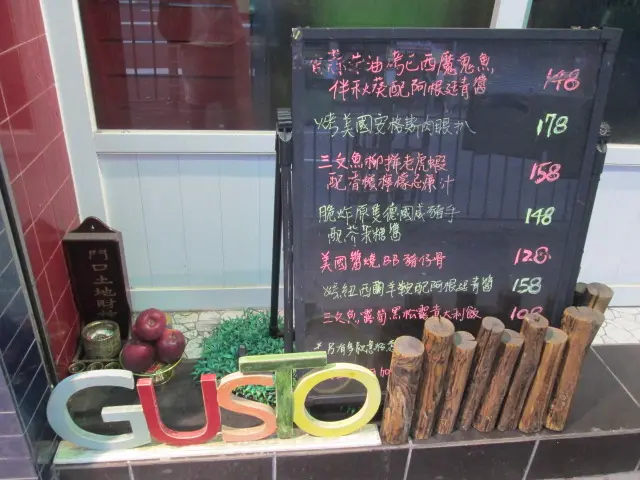 蒜茸油烤巴西魔鬼魚 148
伴秋葵配阿根廷青醬
烤美國安格斯肉眼扒 178
三文魚柳拼老虎蝦 158
配香檳檸檬忌廉汁
脆炸原隻德國咸豬手 148
配芥茉醬
美國醬燒BB豬仔骨 128
烤紐西蘭羊鞍配阿根廷青醬 158
三文魚露荀黑松露意大利飯
門口土地財神
GUSTO